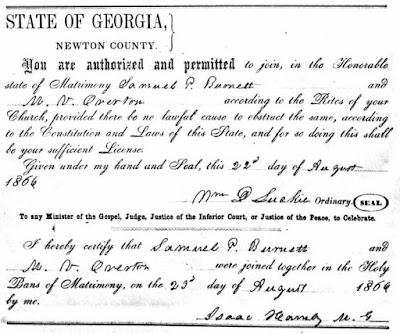 STATE OF GEORGIA,
NEWTON COUNTY.
You are authorized and permitted to join, in the Honorable
state of Matrimony Samuel P. Burnett and
M. V. Overton according to the Rites of your
Church, provided there be no lawful cause to obstruct the same, according
to the Constitution and Laws of this State, and for so doing this shall
be your sufficient License.
Given under my hand and Seal, this 22d day of August
1866
Wm D Luckie Ordinary. SEAL
To any Minister of the Gospel, Judge, Justice of the Inferior Court, or Justice of the Peace, to Celebrate.
I hereby certify that Samuel P. Burnett and
M. V. Overton were joined together in the Holy
Bans of Matrimony, on the 23d day of August 1866
by me.
Isaac M. G